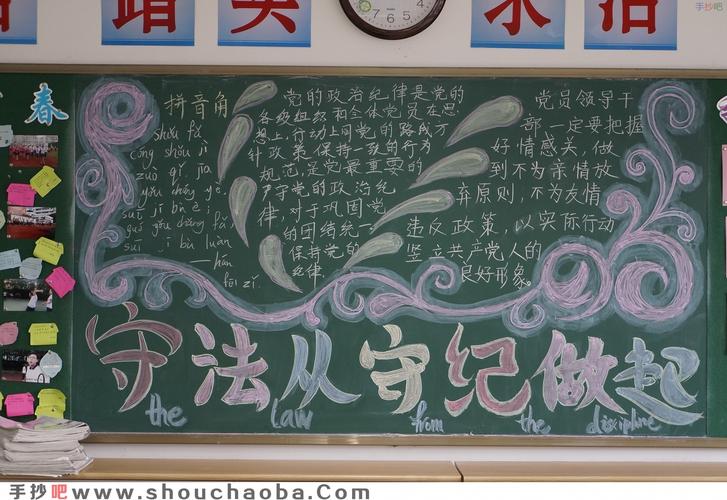 踏 实 求 活
手抄吧
春
拼音角
shǒu fǎ
cóng shǒu jì
zuò qǐ, jiā
yǒu cháng yè.
suī jí bì è
guó yǒu cháng fǎ,
suī jí bù luàn
— hán
fēi zǐ.
党的政治纪律是党的
各级组织和全体党员在思
想上,行动上同党的路线方
针政策保持一致的行为
规范,是党最重要的
严守党的政治纪
律,对于巩固党
的团结统一
保持党的
纪律.
党员领导干
部一定要把握
好情感关,做
到不为亲情放
弃原则,不为友情
违反政策,以实际行动
竖立共产党人的
良好形象。
守法从守纪做起
the law from the discipline
手抄吧 www.shouchaoba.Com